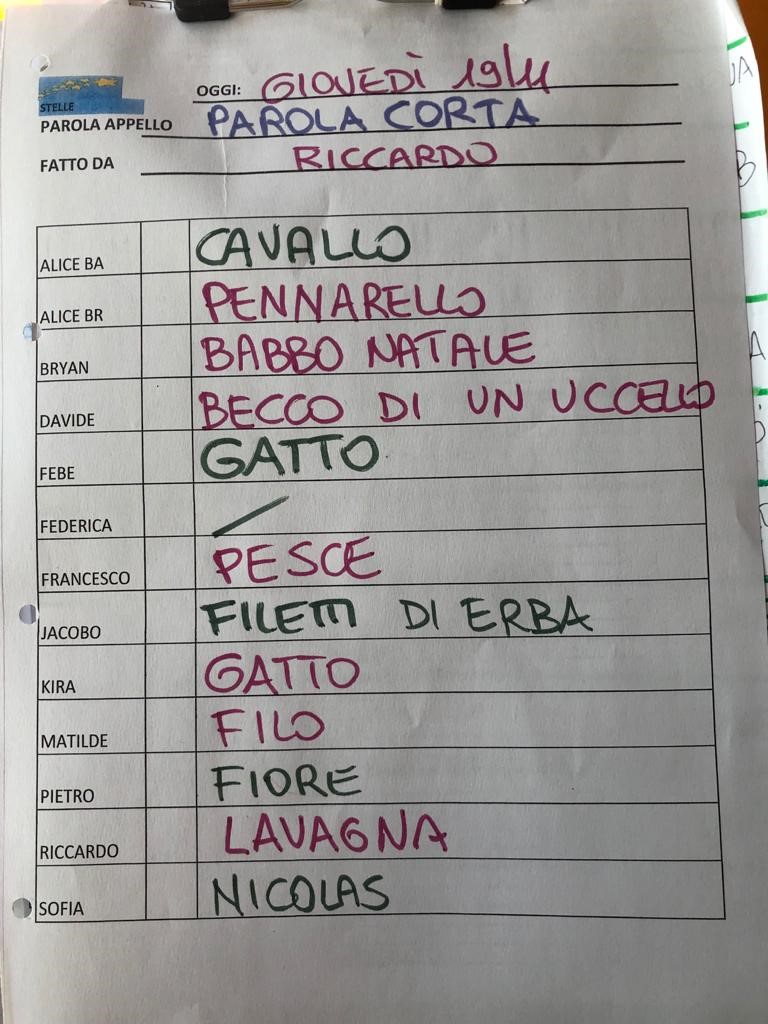 OGGI: GIOVEDÌ 19/11
STELLE
PAROLA APPELLO PAROLA CORTA
FATTO DA RICCARDO
ALICE BA CAVALLO
ALICE BR PENNARELLO
BRYAN BABBO NATALE
DAVIDE BECCO DI UN UCCELLO
FEBE GATTO
FEDERICA /
FRANCESCO PESCE
JACOBO FILETTI DI ERBA
KIRA GATTO
MATILDE FILO
PIETRO FIORE
RICCARDO LAVAGNA
SOFIA NICOLAS